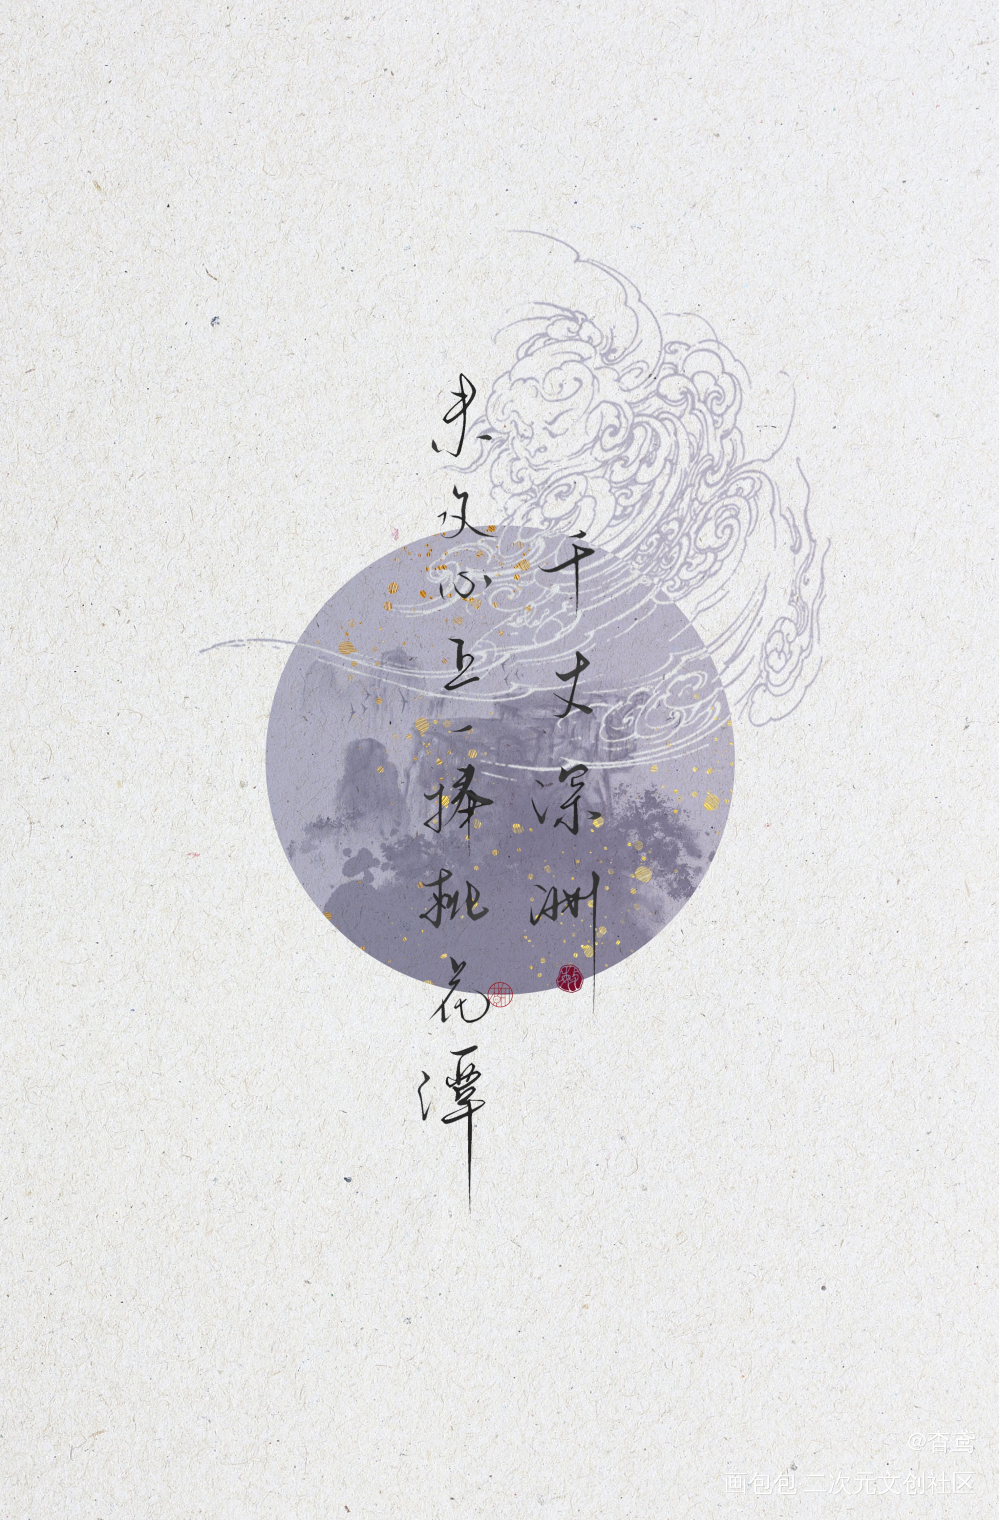 千丈深渊
未及心上一捧桃花潭
@杳鸢
画包包 二次元文创社区